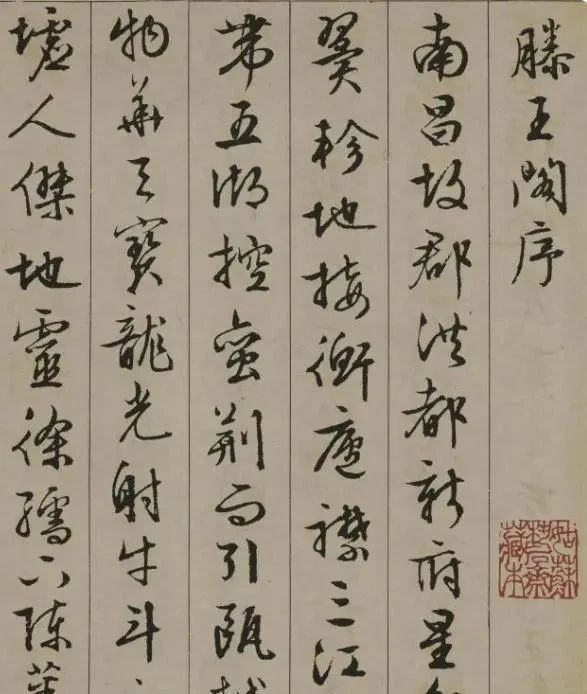 滕王閣序
南昌故郡洪都新府星分
翼軫地接衡廬襟三江
帶五湖控蠻荊而引甌越
物華天寶龍光射牛斗
墟人傑地靈徐孺下陳蕃